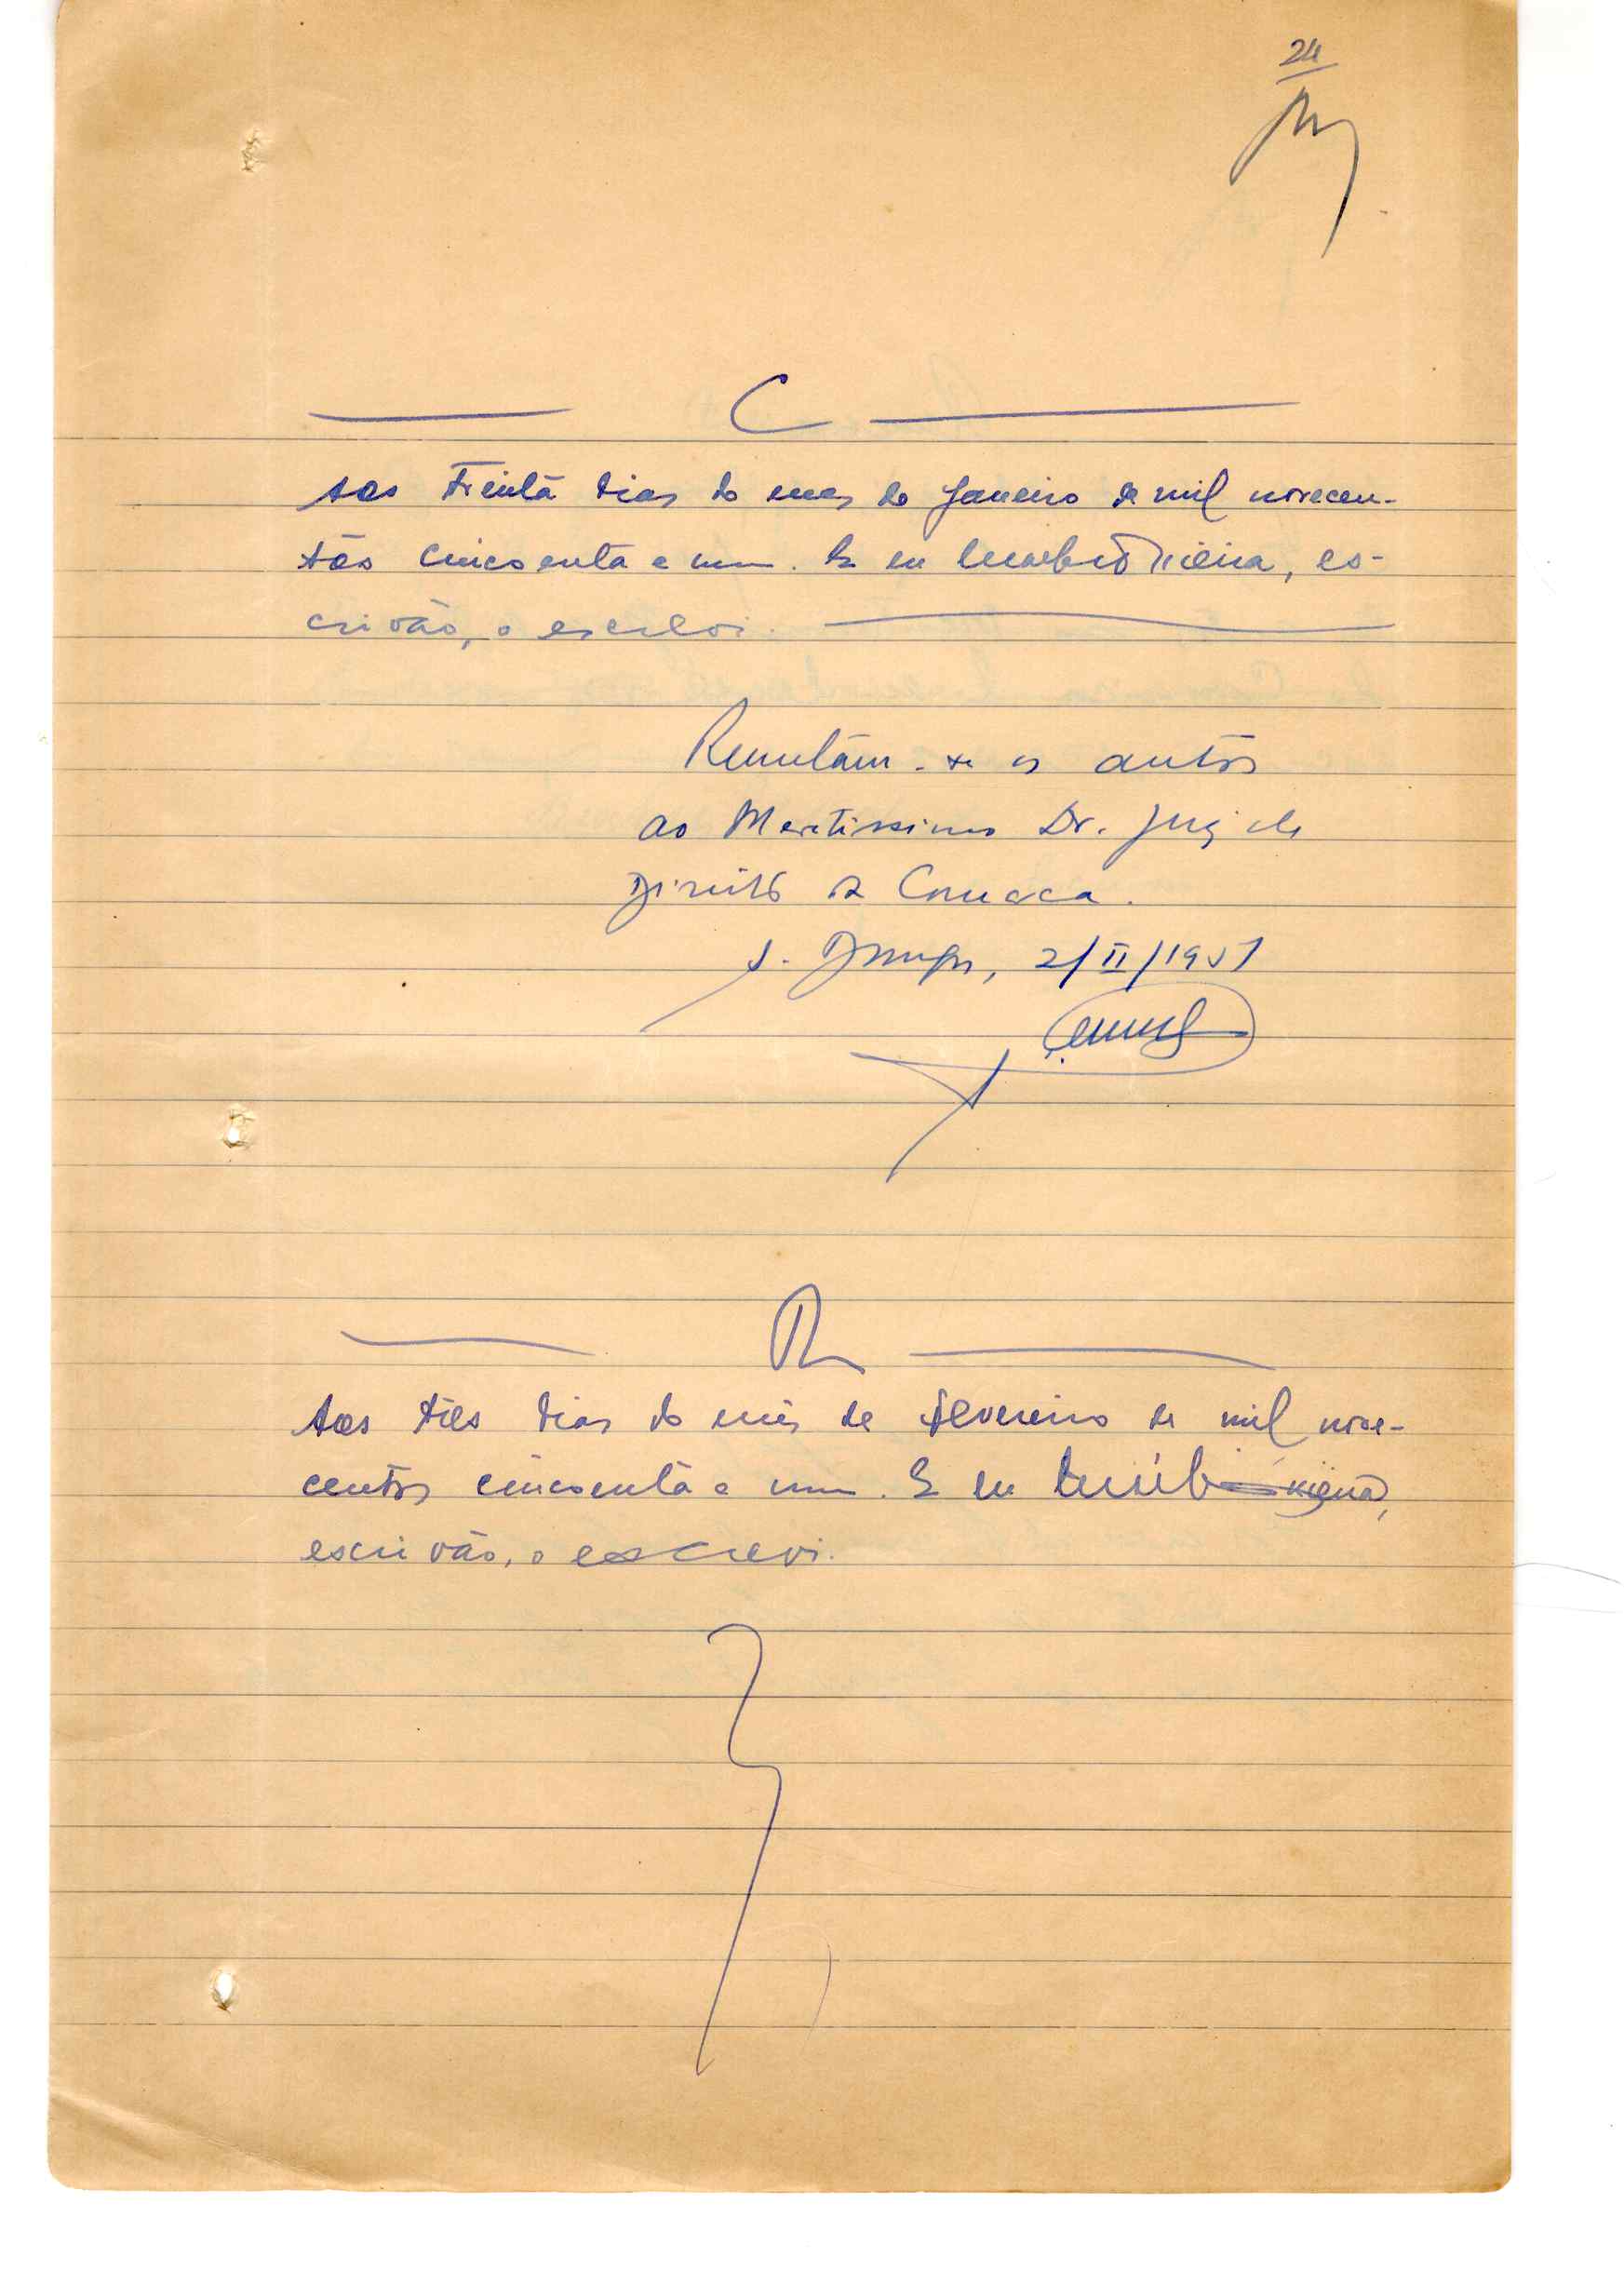 24
C
Aos trinta dias do mes de Janeiro de mil novecen-
tos cincoenta e um. E eu Vieira, es-
crivão, o escrevi.
Remetam-se os autos
ao Meretissimo Dr. Juiz de
Direito da Comarca.
S. Domingos, 2/II/1951
R
Aos três dias do mês de fevereiro de mil nove-
centos cincoenta e um. E eu
escrivão, o escrevi.